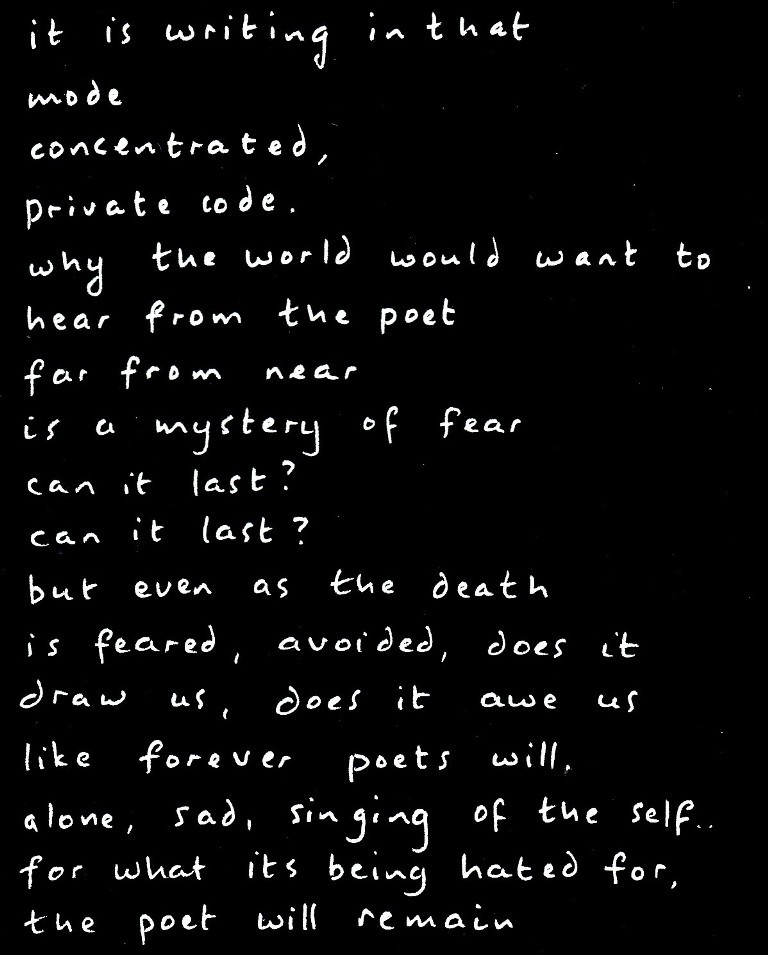 it is writing in that
mode
concentrated,
private code.
why the world would want to
hear from the poet
far from near
is a mystery of fear
can it last?
can it last?
but even as the death
is feared, avoided, does it
draw us, does it awe us
like forever poets will.
alone, sad, singing of the self..
for what its being hated for,
the poet will remain